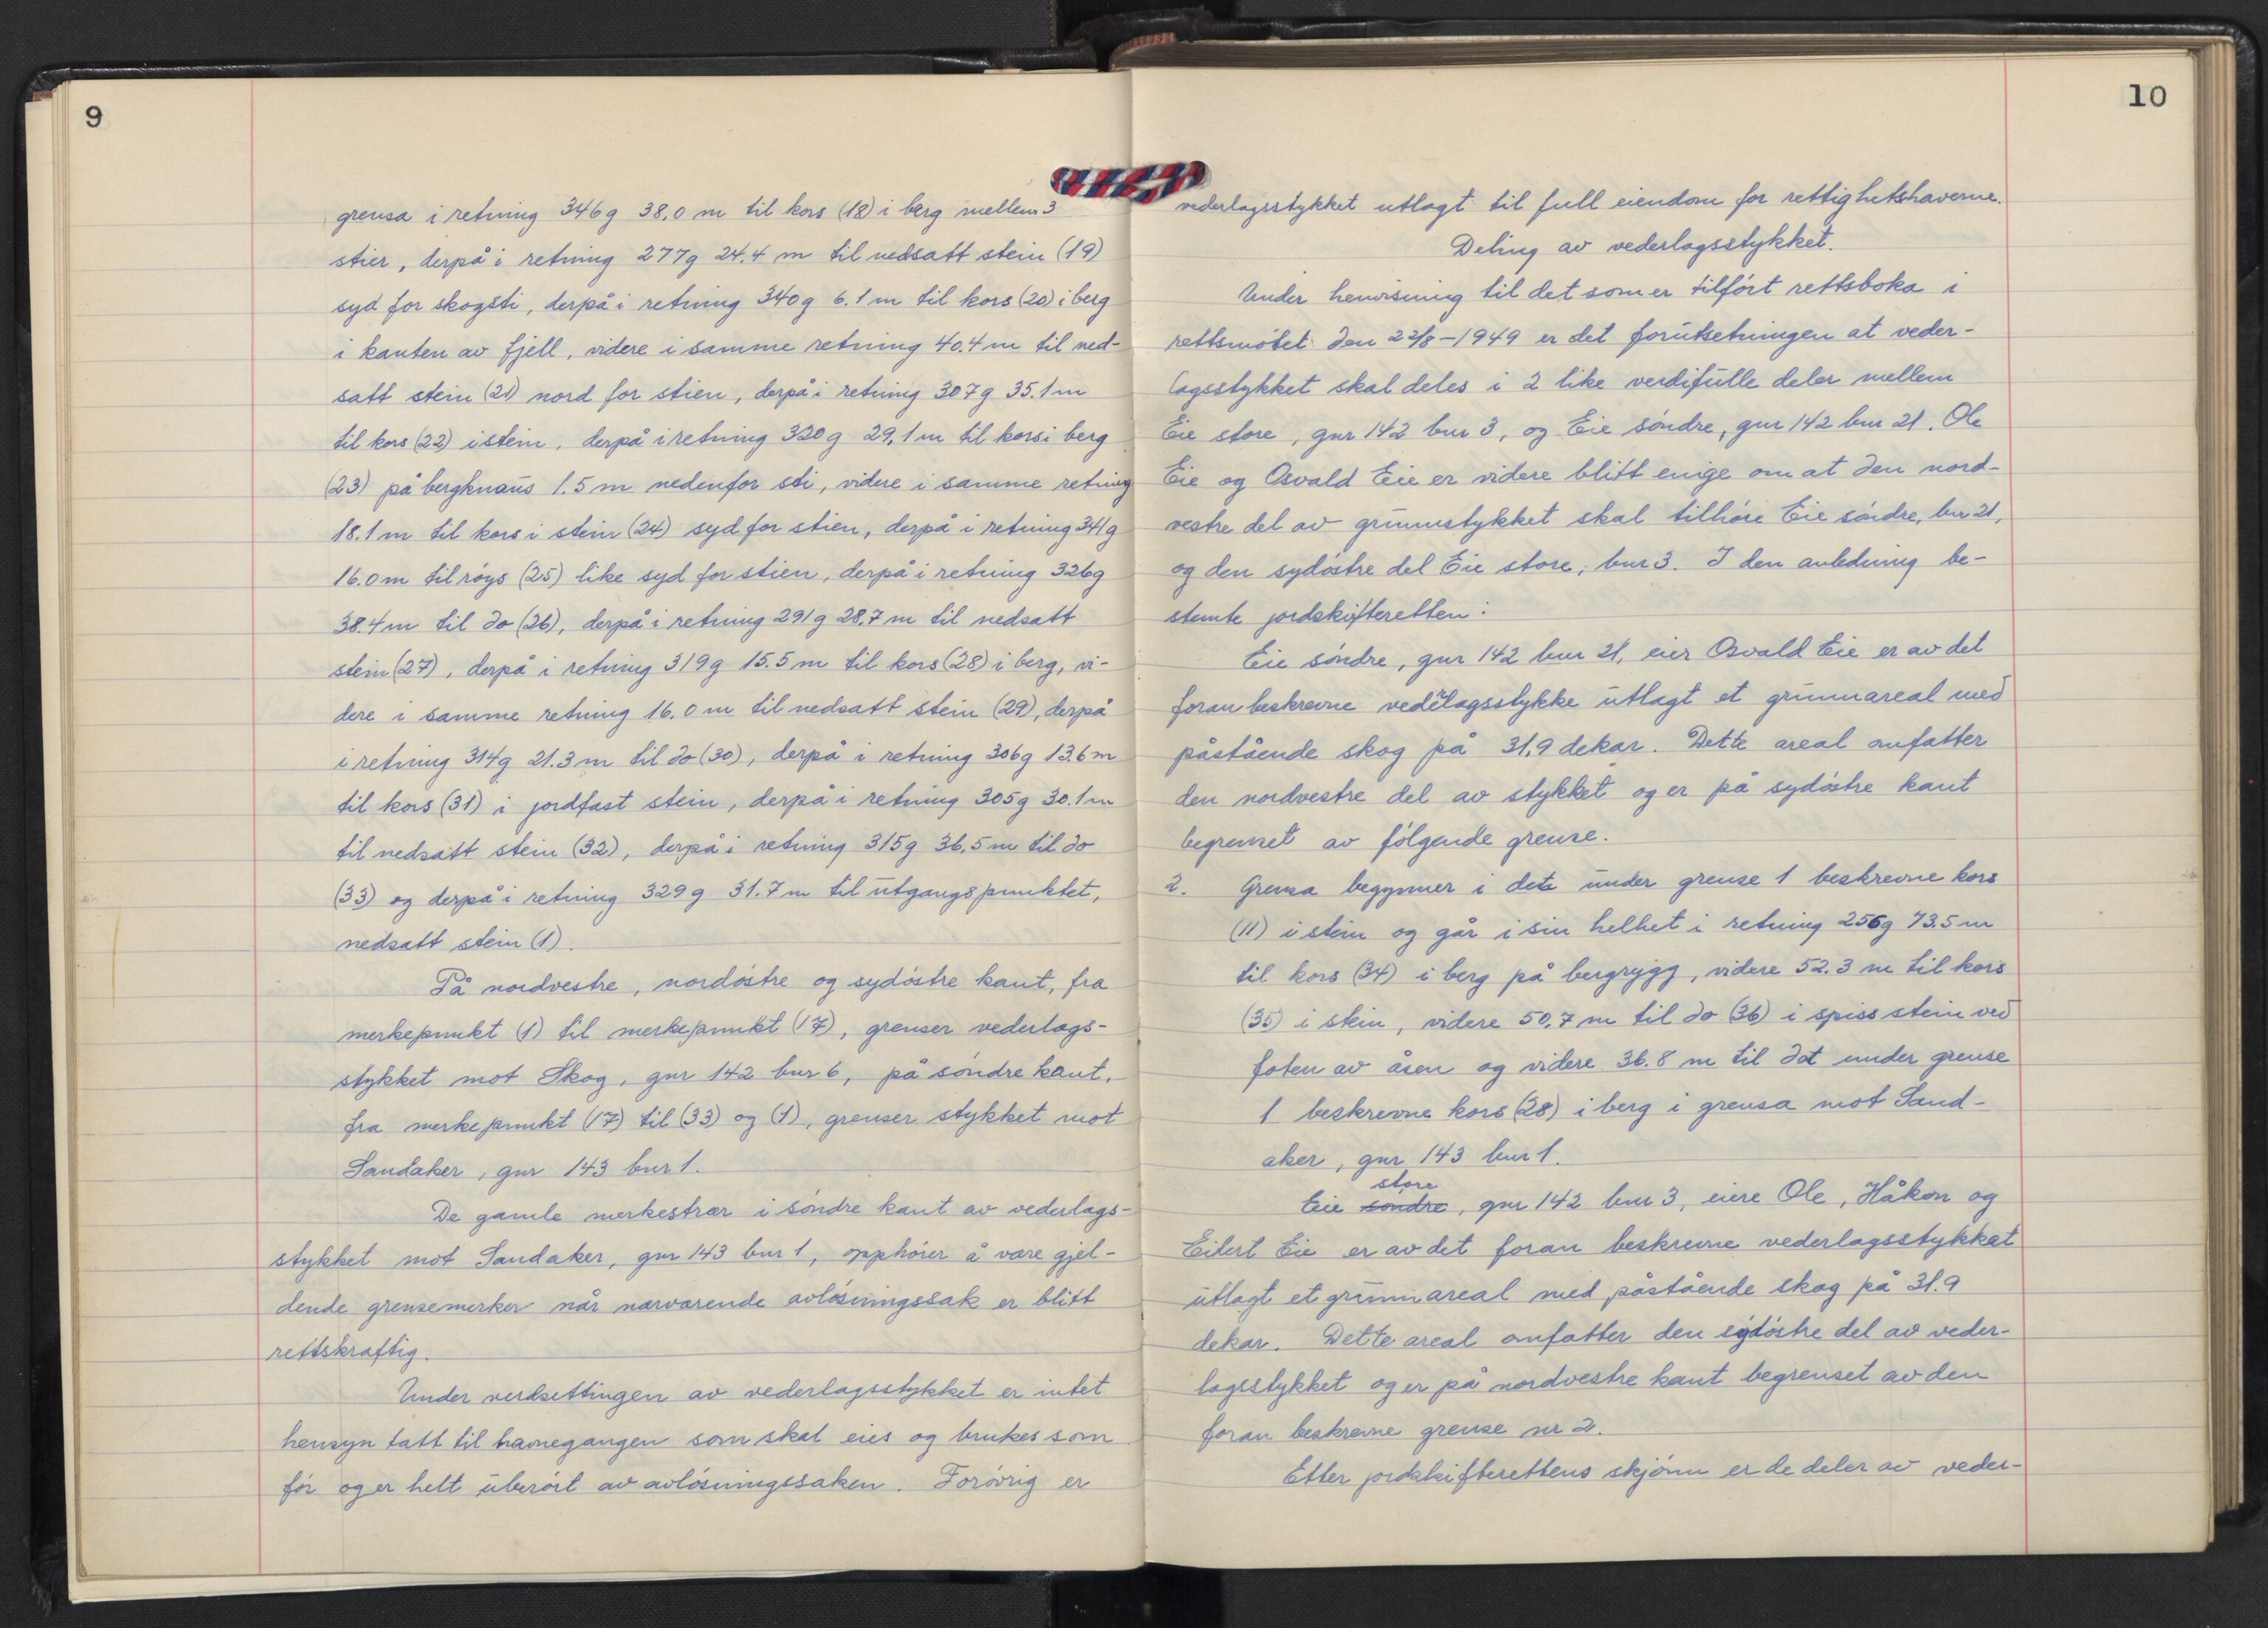 9
grensa i retning 346g 38.0 m til kors (18) i berg mellem 3
stier, derpå i retning 277g 24.4 m til nedsatt stein (19)
syd for skogsti, derpå i retning 340g 6.1 m til kors (20) i berg
i kanten av fjell, videre i samme retning 40.4 m til ned-
satt stein (21) nord for stien, derpå i retning 307g 35.1 m
til kors (22) i stein, derpå i retning 320g 29,1 m til kors i berg
(23) på bergknaus 1.5 m nedenfor sti, videre i samme retning
18.1 m til kors i stein (24) syd for stien, derpå i retning 341g
16.0 m til röys (25) like syd for stien, derpå i retning 326g
38.4 m til do (26), derpå i retning 291g 28.7 m til nedsatt
stein (27), derpå i retning 319g 15.5 m til kors (28) i berg, vi-
dere i samme retning 16.0 m til nedsatt stein (29), derpå
i retning 314g 21.3 m til do (30), derpå i retning 306g 13.6 m
til kors (31) i jordfast stein, derpå i retning 305g 30.1 m
til nedsatt stein (32), derpå i retning 315g 36.5 m til do
(33) og derpå i retning 329g 31.7 m til utgangspunktet,
nedsatt stein (1).
På nordvestre, nordöstre og sydöstre kant, fra
merkepunkt (1) til merkepunkt (17), grenser vederlags-
stykket mot Skog, gnr 142 bnr 6, på söndre kant,
fra merkepunkt (17) til (33) og (1), grenser stykket mot
Sandaker, gnr 143 bnr 1.
De gamle merkestrær i söndre kant av vederlags-
stykket mot Sandaker, gnr 143 bnr 1, opphörer å være gjel-
dende grensemerker når nærværende avlösningssak er blitt
rettskraftig.
Under verdsettingen av vederlagsstykket er intet
hensyn tatt til havnegangen som skal eies og brukes som
för og er helt uberört av avlösningssaken. Foróvrig er
10
vederlagsstykket utlagt til full eiendom for rettighetshaverne.
Deling av vederlagsstykket.
Under henvisning til det som er tilfört rettsboka i
rettsmötet den 22/8-1949 er det forutsetningen at veder-
lagsstykket skal deles i 2 like verdifulle deler mellem
Eie store, gnr 142 bnr 3, og Eie söndre, gnr 142 bnr 21. Ole
Eie og Osvald Eie er videre blitt enige om at den nord-
vestre del av grunnstykket skal tilhöre Eie söndre, bnr 21,
og den sydöstre del Eie store, bnr 3. I den anledning be-
stemte jordskifteretten:
Eie söndre, gnr 142 bnr 21, eier Osvald Eie er av det
foran beskrevne vederlagsstykke utlagt et grunnareal med
påstående skog på 31,9 dekar. Dette areal omfatter
den nordvestre del av stykket og er på sydöstre kant
begrenset av fölgende grense.
2. Grensa begynner i det under grense 1 beskrevne kors
(11) i stein og går i sin helhet i retning 256g 73.5 m
til kors (34) i berg på bergrygg, videre 52.3 m til kors
(35) i stein, videre 50,7 m til do (36) i spiss stein ved
foten av åsen og videre 36.8 m til det under grense
1 beskrevne kors (28) i berg i grensa mot Sand-
aker, gnr 143 bnr 1.
store
Eie söndre, gnr 142 bnr 3, eiere Ole, Håkon og
Eilert Eie er av det foran beskrevne vederlagsstykket
utlagt et grunnareal med påstående skog på 31.9
dekar. Dette areal omfatter den sydöstre del av veder-
lagsstykket og er på nordvestre kant begrenset av den
foran beskrevne grense nr 2.
Etter jordskifterettens skjönn er de deler av veder-